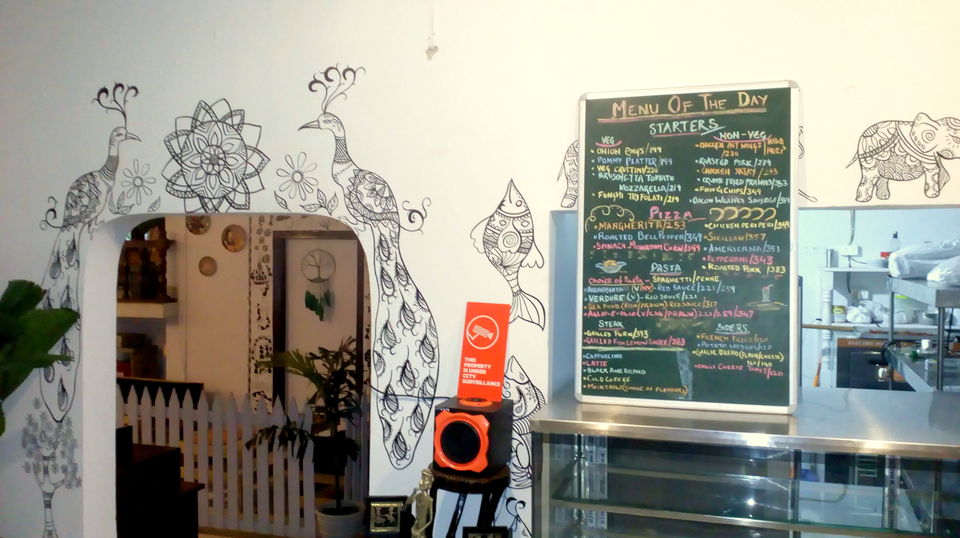 MENU OF THE DAY
STARTERS
VEG
ONION RINGS/199
POMMY PLATTER/199
VEG CROSTINO/220
BRUSCHETTA TOMATO
MOZZARELLA/219
FUNGHI TRIFOLATI/219
NON-VEG
CHICKEN HOT WINGS
/220
ROASTED PORK/279
CHICKEN SATAY/233
CRUMB FRIED PRAWNS/353
FISH & CHIPS/349
BACON WRAPPED SAUSAGE/349
PIZZA
MARGHERITA/253
ROASTED BELL PEPPER/349
SPINACH MUSHROOM CORN/349
CHICKEN PERI PERI/349
SICILIAN/357
AMERICANA/351
PEPPERONI/343
ROASTED PORK/383
PASTA
CHOICE OF PASTA - SPAGHETTI/PENNE
ARRABBIATA (V/NV) - RED SAUCE/221/259
VERDURE (V) - RED SAUCE/221
SEA FOOD (FISH/PRAWN) RED SAUCE/317
AGLIO-E-OLIO (V/CHN/PRAWN) 221/259/347
STEAK
GRILLED PORK/393
GRILLED FISH LEMON SAUCE/383
SIDERS
FRENCH FRIES/120
POTATO WEDGES/120
GARLIC BREAD (PLAIN/CHEESE)
/140
CHILLI CHEESE TOAST/120
CAPPUCCINO
LATTE
BLACK AMERICANO
COLD COFFEE
MOCKTAILS (CHOICE OF FLAVOURS)
THIS
PROPERTY
IS UNDER
CCTV
SURVEILLANCE